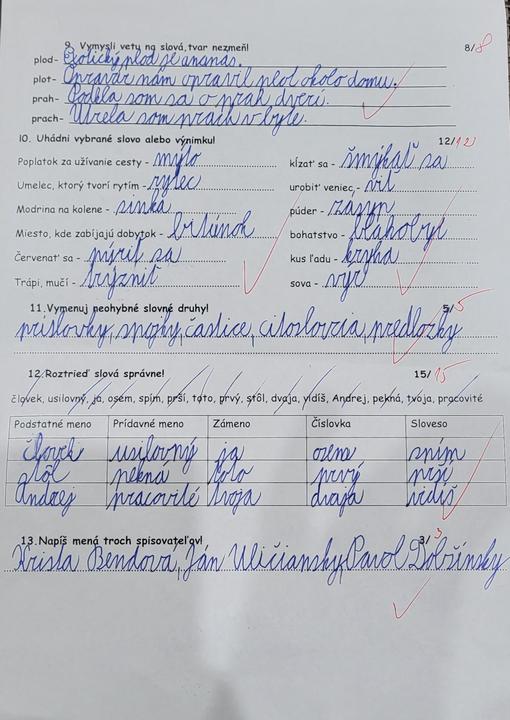 9. Vymysli vetu na slová, tvar nezmeň! 8/8
plod- Exotický plod je ananás.
plot- Opravár nám opravil plot okolo domu.
prah- Podĺa som sa o prah dverí.
prach- Utrela som prach v byte.
10. Uhádni vybrané slovo alebo výnimku! 12/12
Poplatok za užívanie cesty - mýto kĺzať sa - šmýkať sa
Umelec, ktorý tvorí rytím - rytec urobiť veniec - viť
Modrina na kolene - sinka púder - zásyp
Miesto, kde zabíjajú dobytok - bitúnok bohatstvo - blahobyt
Červenať sa - pýriť sa kus ľadu - kryha
Trápi, mučí - trýzniť sova - výr
11. Vymenuj neohybné slovné druhy! 5/5
príslovky, spojky, častice, citoslovcia, predložky
12. Roztrieď slová správne! 15/15
človek, usilovný, ja, osem, spím, prší, toto, prvý, stôl, dvaja, vidíš, Andrej, pekná, tvoja, pracovité
Podstatné meno Prídavné meno Zámeno Číslovka Sloveso
človek usilovný ja osem spím
stôl pekná toto prvý prší
Andrej pracovité tvoja dvaja vidíš
13. Napíš mená troch spisovateľov! 3/3
Krista Bendová, Ján Uličiansky, Pavol Dobšinsky